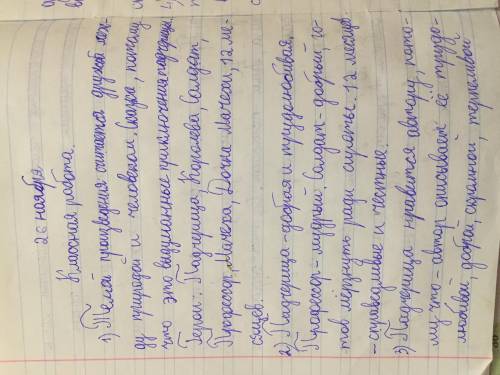 26 ноября
Классная работа.
1) Темой произведения считается дружба меж-
ду природой и человеком. Сказка, потому
что это выдуманные приключения падчерицы.
Герои: Падчерица, Королева, Солдат,
Профессор, Мачеха, Дочка Мачехи, 12 ме-
сяцев.
2) Падчерица - добрая и трудолюбивая.
Профессор - мудрый. Солдат - добрый, го-
тов мёрзнуть ради сироты. 12 месяцев
- справедливые и честные.
3) Падчерица нравится автору, пото-
му что - автор описывает её трудо-
любивой, доброй, скромной, терпеливой